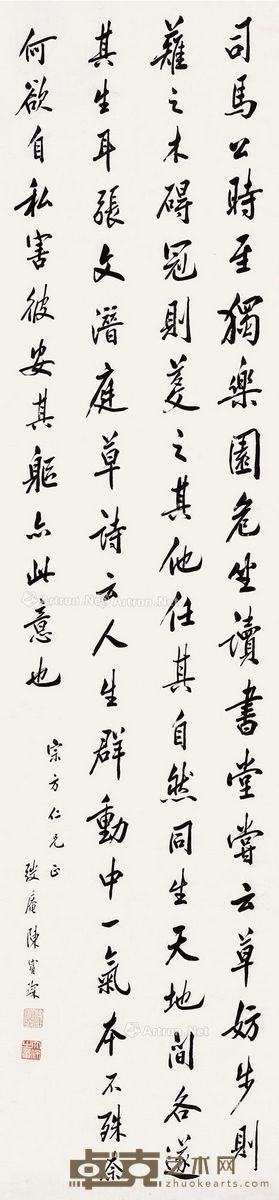 司馬公時至獨樂園危坐讀書堂嘗云草妨步則
薙之木礙冠則芟之其他任其自然同生天地間各遂
其生耳張文潛庭草詩云人生群動中一氣本不殊奈
何欲自私害彼安其軀亦此意也
宗方仁兄正
弢庵陳寶琛
Artron.Net
Artron.Net
Artron.Net
卓克艺术网
www.zhuokearts.com